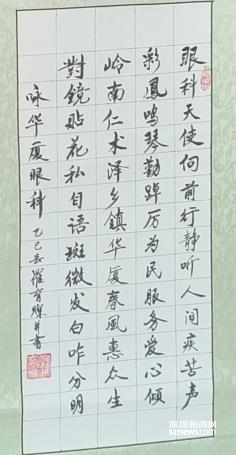 眼科天使向前行静听人间疾苦声
彩鳳鳴琴勤踔厉为民服务爱心倾
岭南仁术泽乡鎮华厦春風惠众生
對鏡贴花私自语斑微发白咋分明
咏华厦眼科 乙巳春 罗有 并书
深圳新闻网
sznews.com